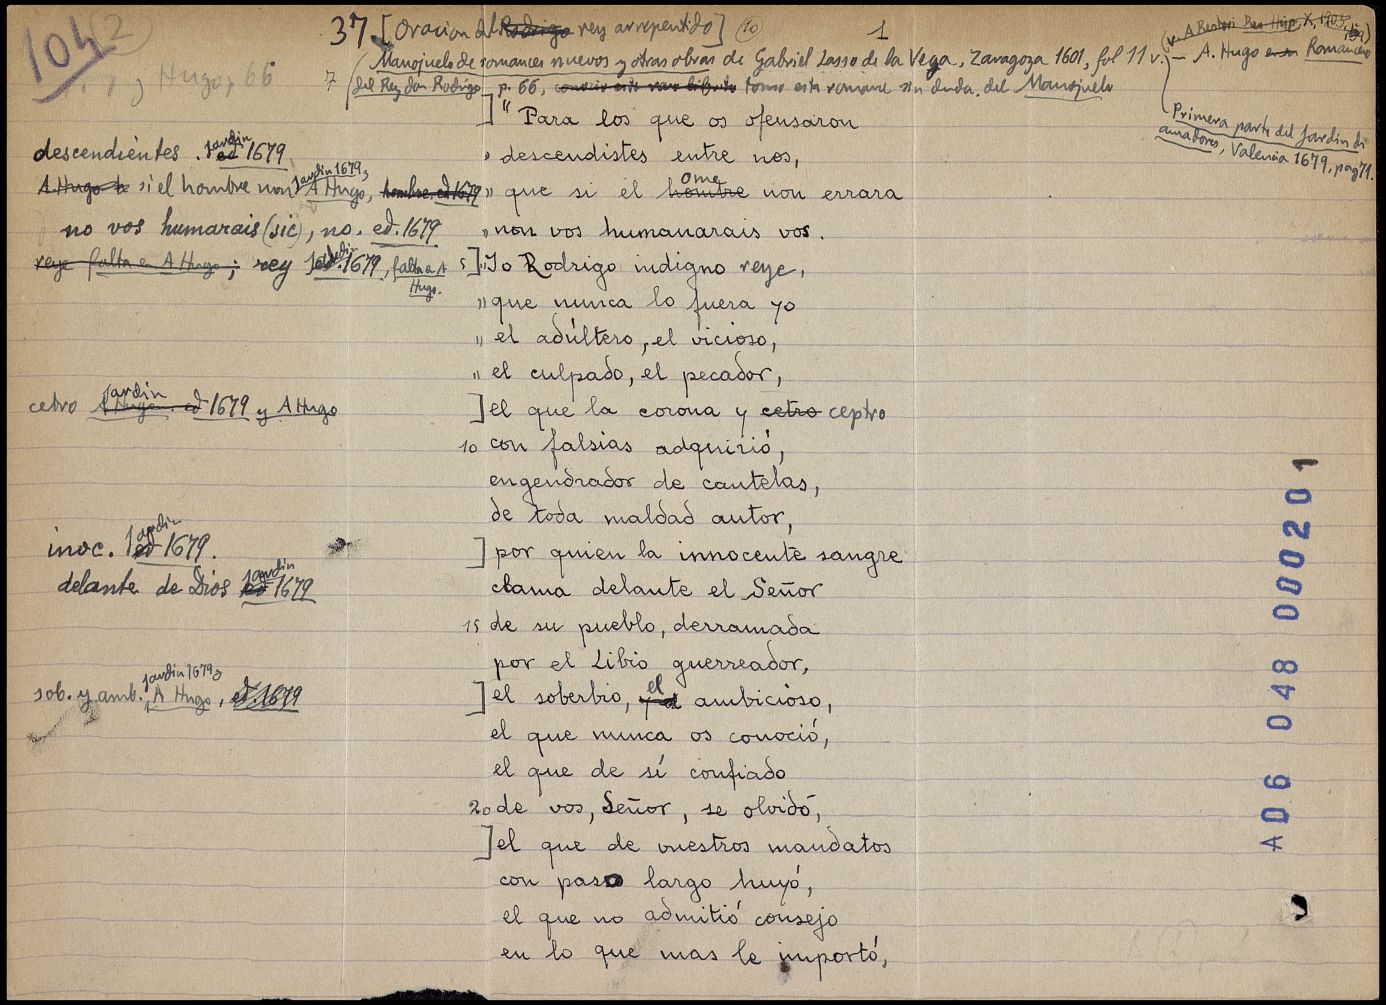 104 2
37. [Oracion del Rodrigo rey arrepentido] (10) 1
Manojuelo de romances nuevos y otras obras de Gabriel Lasso de la Vega, Zaragoza 1601, fol 11 v. — A. Hugo Romancero
Hugo, 66
del Rey don Rodrigo p. 66, conocio este raro librito tomo este romance sin duda del Manojuelo
Primera parte del Jardin de
amadores, Valencia 1679, pag 71.
] " Para los que os ofensaron
descendientes. Jardin ed 1679
" descendistes entre nos,
A Hugo si el hombre non Jardin 1679, A Hugo, hombre ed 1679
" que si el hombre ome non errara
no vos humarais (sic), no. ed. 1679
" non vos humanarais vos.
reye falta en A Hugo; rey Jardin ed. 1679, falta en A Hugo.
5 ] " Yo Rodrigo indigno reye,
" que nunca lo fuera yo
" el adúltero, el vicioso,
" el culpado, el pecador,
cetro Jardin A Hugo. ed 1679 y A Hugo
] el que la corona y cetro ceptro
10 con falsias adquirió,
engendrador de cautelas,
de toda maldad autor,
inoc. Jardin ed 1679.
] por quien la innocente sangre
delante de Dios Jardin ed 1679
clama delante el Señor
15 de su pueblo, derramada
por el Libio guerreador,
sob. y amb. Jardin 1679 y A Hugo, ed. 1679
] el soberbio, y el el ambicioso,
el que nunca os conoció,
el que de sí confiado
20 de vos, Señor, se olvidó,
] el que de vuestros mandatos
con paso largo huyó,
el que no admitió consejo
en lo que mas le importó,
A06 048 000201